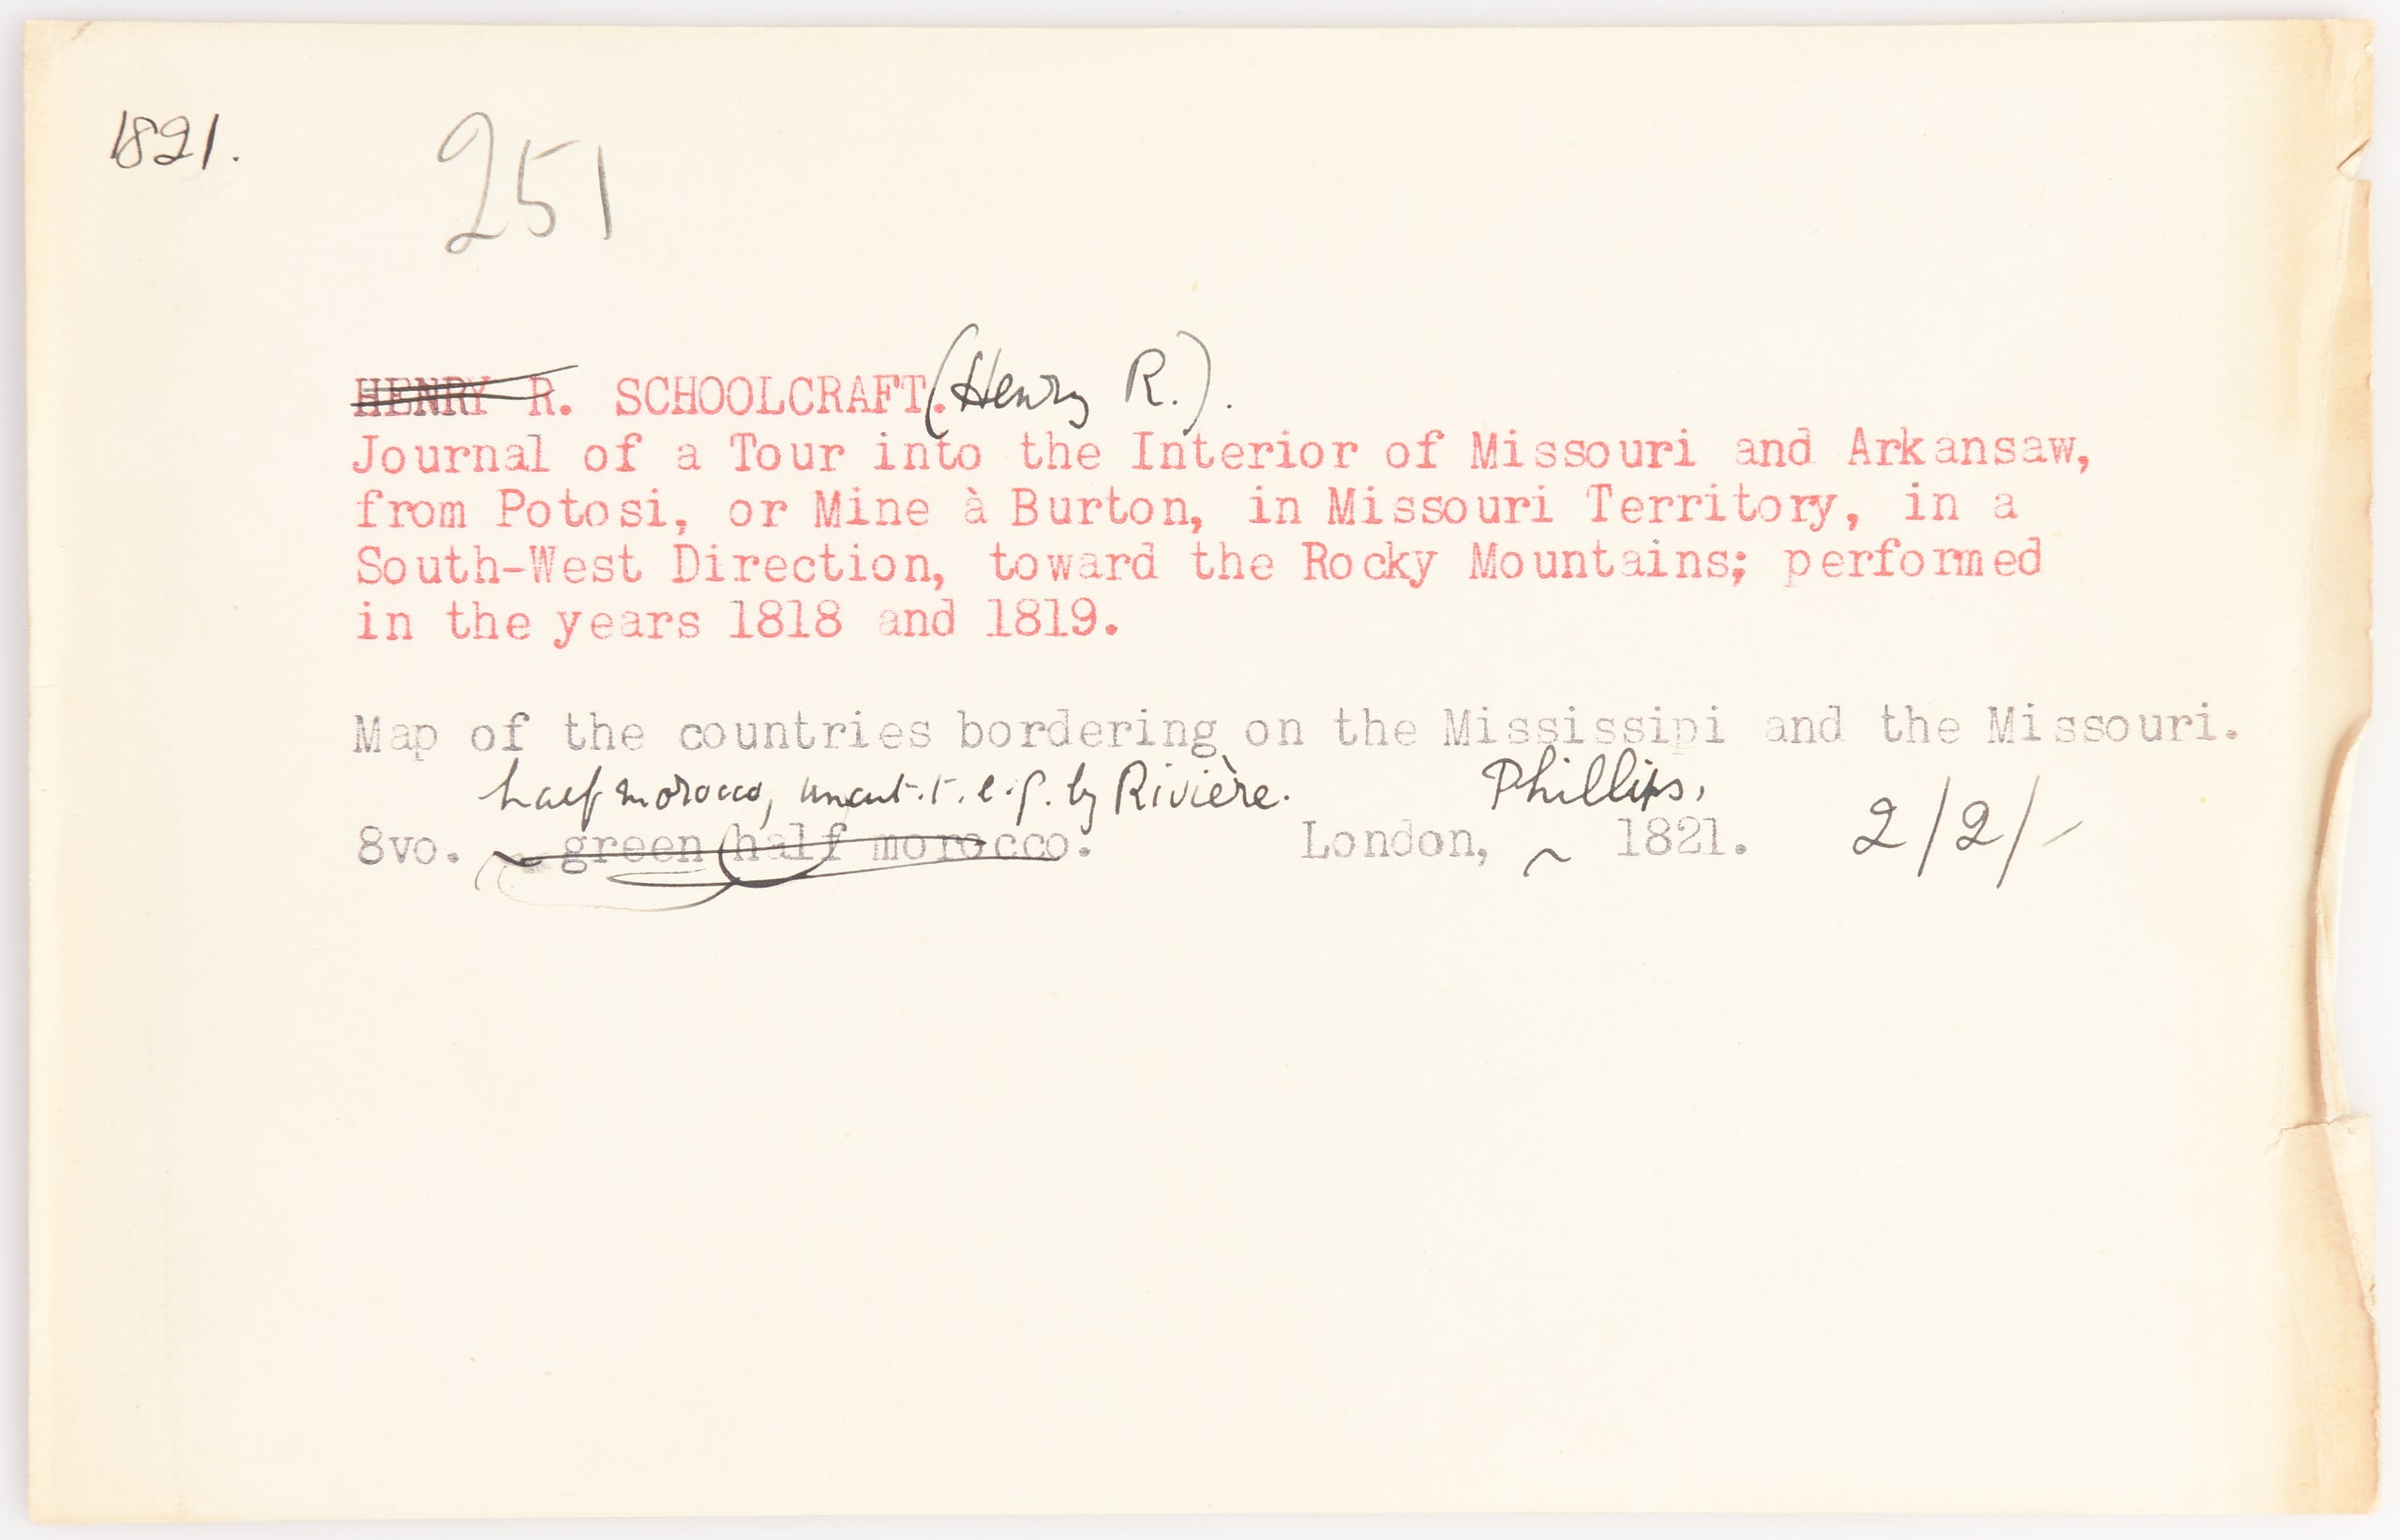 1821.
251
HENRY R. SCHOOLCRAFT. (Henry R.).
Journal of a Tour into the Interior of Missouri and Arkansaw,
from Potosi, or Mine à Burton, in Missouri Territory, in a
South-West Direction, toward the Rocky Mountains; performed
in the years 1818 and 1819.
Map of the countries bordering on the Mississipi and the Missouri.
half morocco, uncut. t. e. g. by Rivière. Phillips,
8vo. green half morocco. London, 1821. 2/2/-